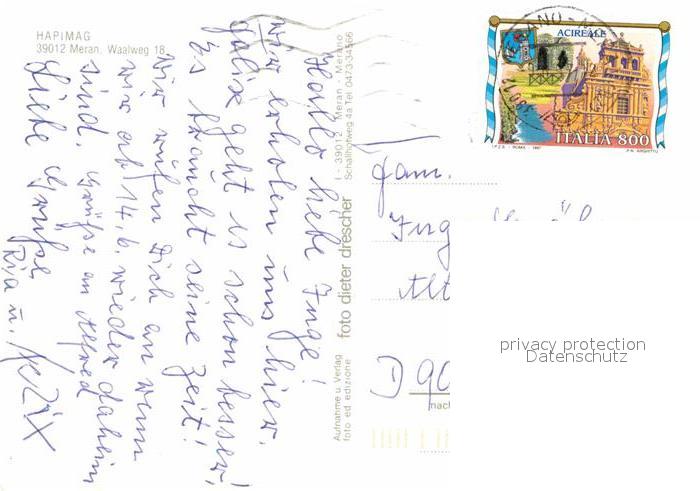 HAPIMAG
39012 Meran, Waalweg 18
Hallo liebe Inge!
Wir erholen uns hier.
Felix geht es schon besser!
Es braucht seine Zeit!
Wir rufen Dich an wenn
wir ab 14.6. wieder daheim
sind. Grüße an Alfred
Liebe Grüße
Ria u. Felix
Aufnahme u. Verlag
foto ed edizione
foto dieter drescher
I - 39012 Meran - Merano
Schallhofweg 4a Tel. 0473-34566
ACIREALE
ITALIA 800
I.P.Z.S. - ROMA - 1997
Fam.
Ing
Alt
D 90
nach
privacy protection
Datenschutz